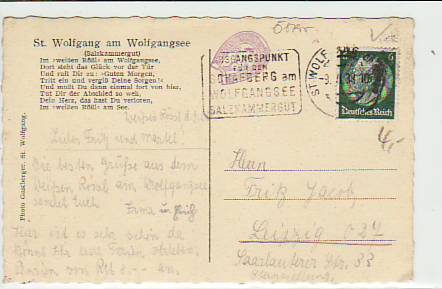 St. Wolfgang am Wolfgangsee
(Salzkammergut)
Im »weißen Rößl« am Wolfgangsee,
Dort steht das Glück vor der Tür
Und ruft Dir zu: »Guten Morgen,
Tritt ein und vergiß Deine Sorgen!«
Und mußt Du dann einmal fort von hier,
Tut Dir der Abschied so weh,
Dein Herz, das hast Du verloren,
Im »weißen Rößl« am See.
AUSGANGSPUNKT
FÜR DEN
SCHAFBERG am
WOLFGANGSEE
SALZKAMMERGUT
ST. WOLF
Deutsches Reich
4,-
Photo Gastberger, St. Wolfgang.
Weißes Rössl
Lieber Fritz und
Die besten Grüße aus dem
Weißen Rössl am Wolfgangsee
sendet Euch
Erna u.
Hier ist es sehr schön da
Pension von RM 8.— an.
Herrn
Fritz Jacob
Leipzig
Saarlauterer Str. 33